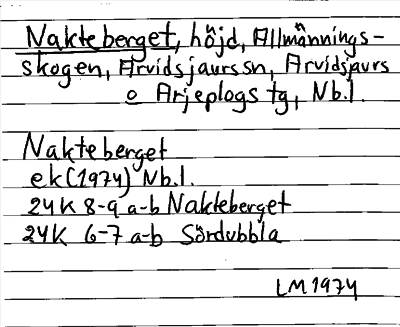 Nakteberget, höjd, Allmännings-
skogen, Arvidsjaurssn, Arvidsjaurs
o Arjeplogs tg, Nb.l.
Nakteberget
ek(1974) Nb.l.
24K 8-9 a-b Nakteberget
24K 6-7 a-b Sördubbla
LM 1974